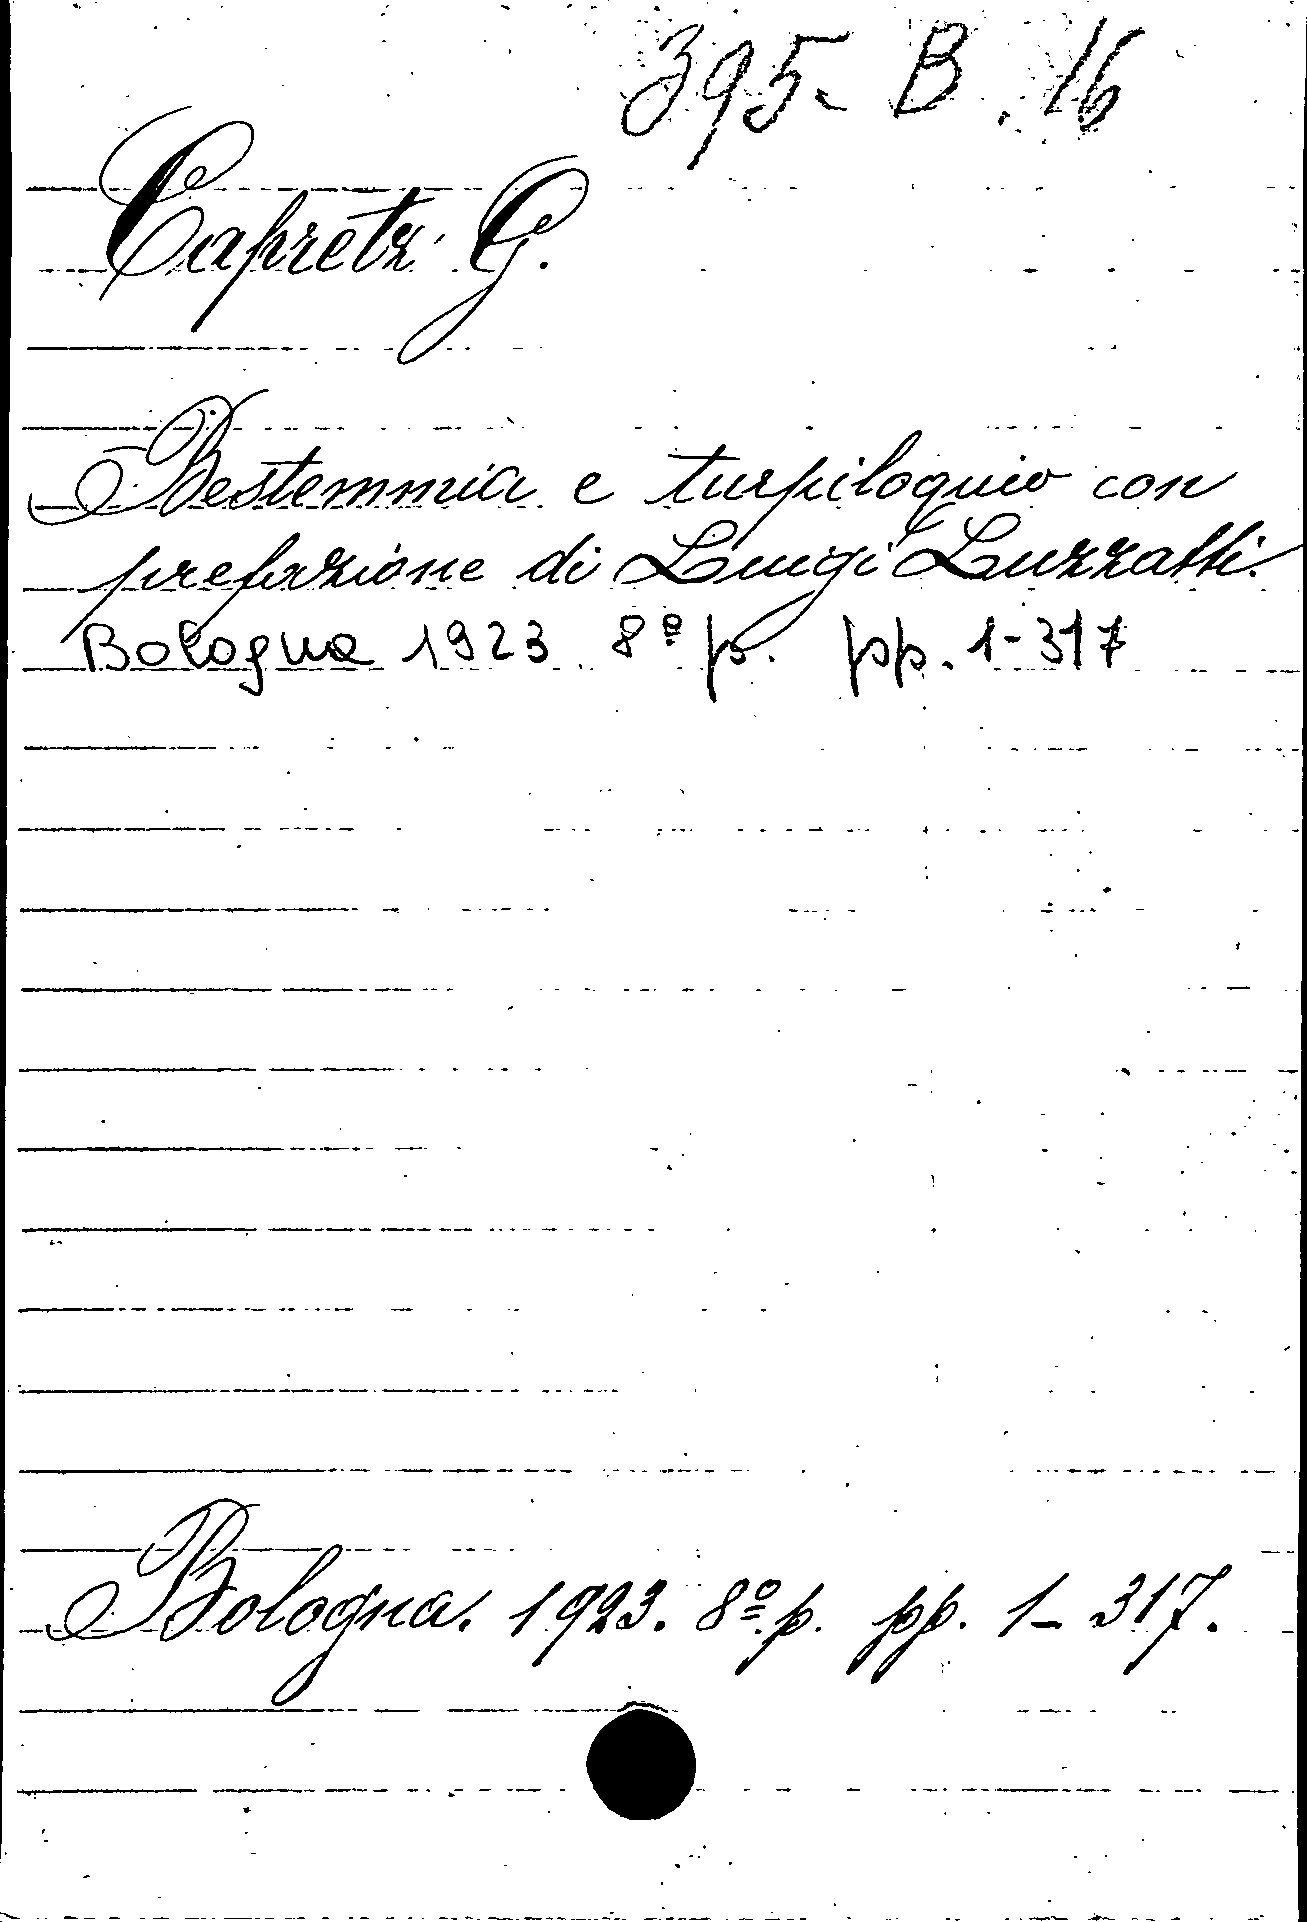 395- B. 16
Capretz G.
Bestemmia e turpiloquio con
prefazione di Luigi Luzzatti.
Bologna 1923 8º p. pp. 1-317
Bologna. 1923. 8º p. pp. 1-317.